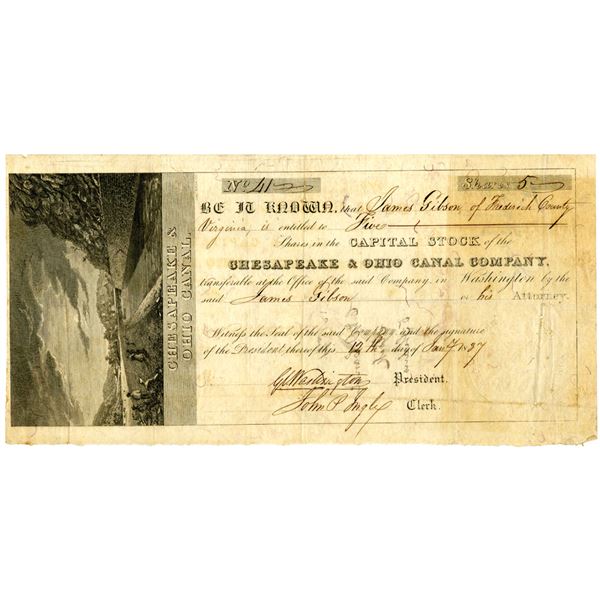 CHESAPEAKE &
OHIO CANAL.
No 41
Shares 5
BE IT KNOWN, that James Gibson of Frederick County
Virginia, is entitled to Five
Shares in the CAPITAL STOCK of the
CHESAPEAKE & OHIO CANAL COMPANY,
transferable at the Office of the said Company, in Washington by the
said James Gibson or his Attorney.
Witness the Seal of the said Company and the signature
of the President thereof this 12th day of Jany 1837
G C Washington President.
John P. Ingle Clerk.